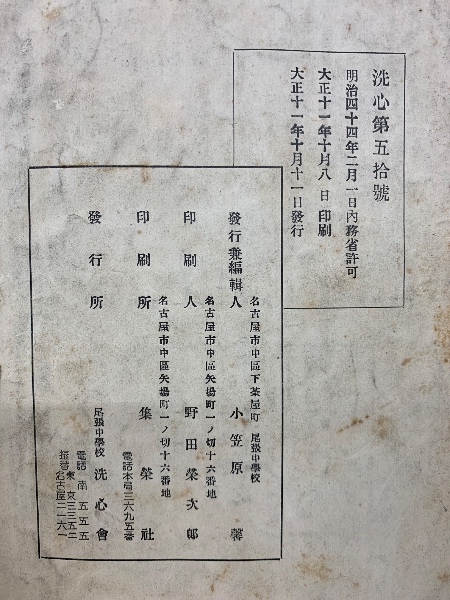 洗心第五拾號
明治四十四年二月一日內務省許可
大正十一年十月八日印刷
大正十一年十月十一日發行
名古屋市中區下茶屋町 尾張中學校
發行兼編輯人 小笠原馨
名古屋市中區矢場町一ノ切十六番地
印刷人 野田榮次郎
名古屋市中區矢場町一ノ切十六番地
印刷所 集榮社
電話本局三六九五番
發行所 尾張中學校 洗心會
電話南五五五